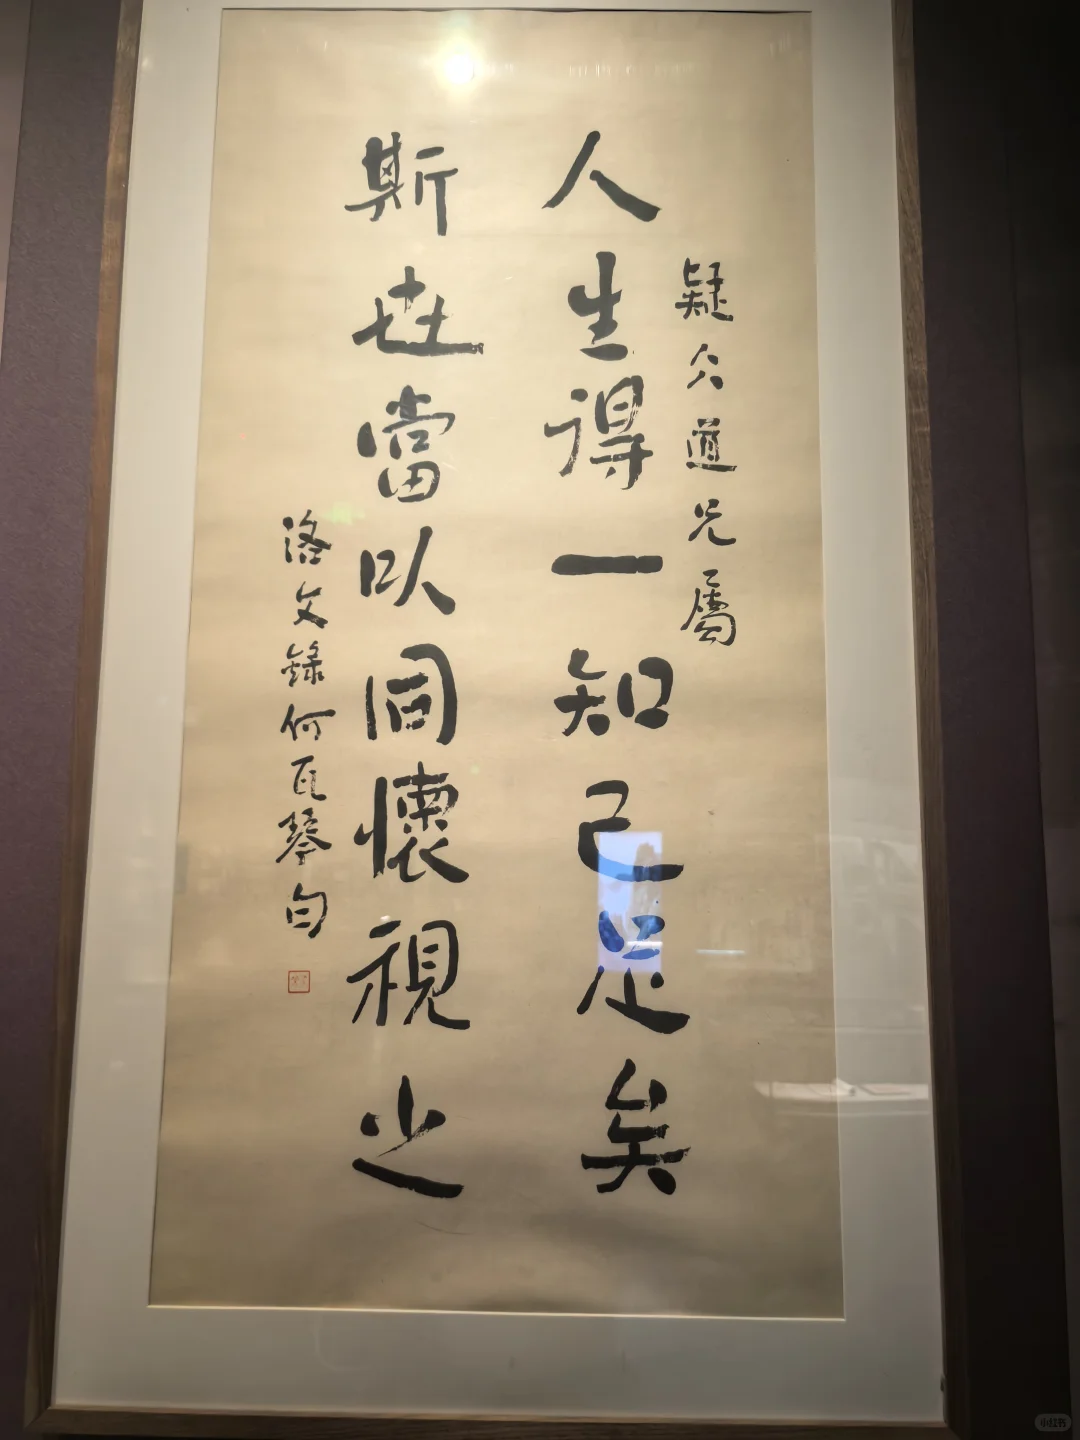 疑仌道兄屬
人生得一知己足矣
斯世當以同懷視之
洛文錄何瓦琴句
小红书